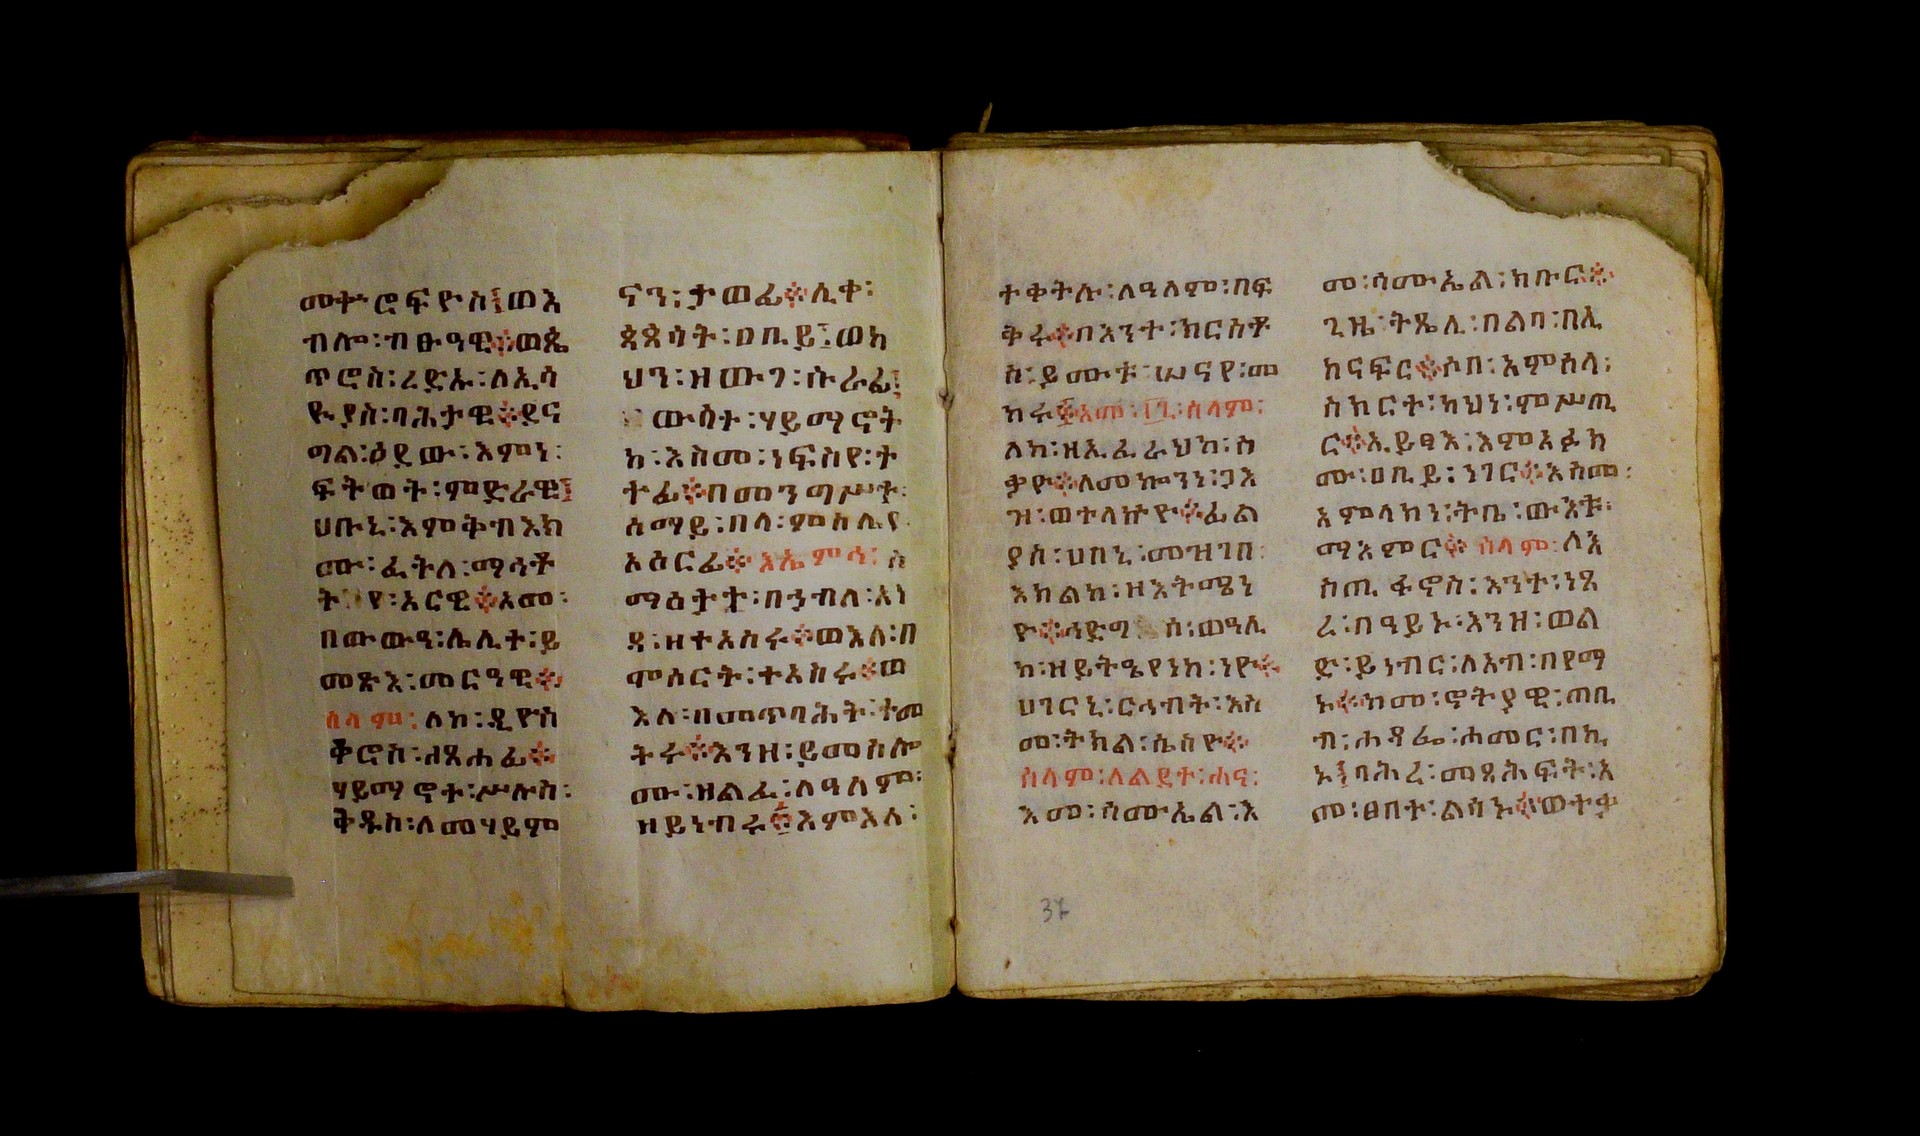 መቅሮፍዮስ፤ወእ
ብሎ፡ብፁዓዊ፨ወጴ
ጥሮስ፡ረድኡ፡ለኢሳ
ይያስ፡ባሕታዊ፨ደና
ግል፡ዕደው፡እምነ፡
ፍትወት፡ምድራዊ፤
ሀቡኒ፡እምቅብእክ
ሙ፡ፈትለ፡ማኅቶ
የ፡አርዊ፨አመ፡
በውውዓ፡ሌሊት፡ይ
መጽእ፡መርዓዊ፨
ሰላም፡ለከ፡ዲዮስ
ቆሮስ፡ለጸሐፊ፨
ሃይማኖተ፡ሥሉስ፡
ቅዱስ፡ለመሃይም
ናን፡ታወፊ፨ሊቀ፡
ጳጳሳት፡ዐቢይ፤ወካ
ህን፡ዘውገ፡ሱራፊ፤
ውስተ፡ሃይማኖት
ከ፡እስመ፡ነፍስየ፡ት
ተፊ፨በመንግሥተ፡
ሰማይ፡በላ፡ምስሌየ
አዕርፊ፨
ማዕታት፡በኃብለ፡አነ
ዳ፡ዘተአስሩ፨ወእለ፡በ
ሞሰርት፡ተአስሩ፨ወ
እለ፡በመጥባሕት፡ተመ
ትሩ፨እንዘ፡ይመስሎ
ሙ፡ዘልፈ፡ለዓለም፡
ዘይነብሩ፨እምእለ፡
ተቀትሉ፡ለዓለም፡በፍ
ቅሩ፨በእንተ፡ክርስቶ
ስ፡ይሙቱ፡ሠናየ፡መ
ከሩ፨አመ፡፲፯፡ሰላም፡
ለከ፡ዘኢፈራህከ፡ስ
ቃዮ፨ለመኰንን፡ጋእ
ዝ፡ወተላኵዮ፨ፊል
ያስ፡ሀበኒ፡መዝገበ፡
እክልከ፡ዘእትሜነ
ዮ፨ኅድግ ሰ፡ወዓሊ
ከ፡ዘይትዔየነከ፡ነዮ፨
ሀገርኒ፡ርኅብት፡እስ
መ፡ትክል፡ሴስዮ፨
ሰላም፡ለልደተ፡ሐና፡
እመ፡ሳሙኤል፡እ
መ፡ሳሙኤል፡ክቡር፨
ጊዜ፡ትጼሊ፡በልባ፡በሊ
ከናፍር፨ሶበ፡አምሰላ፡
ስክርተ፡ካህነ፡ምሥጢ
ር፨ኢይፃእ፡እምአፉክ
ሙ፡ዐቢይ፡ነገር፨እስመ፡
አምላክነ፡ትቤ፡ውእቱ፡
ማእምር፨ሰላም፡ለእ
ስጢፋኖስ፡እንተ፡ነጸ
ረ፡በዓይኑ፡እንዘ፡ወል
ድ፡ይነብር፡ለአብ፡በየማ
ኑ፨ከመ፡ኖትያዊ፡ጠቢ
ብ፡ሐዳፌ፡ሐመር፡በኪ
ኑ፤ባሕረ፡መጻሕፍት፡አ
መ፡ፀበተ፡ልሳኑ፨ወተቃ